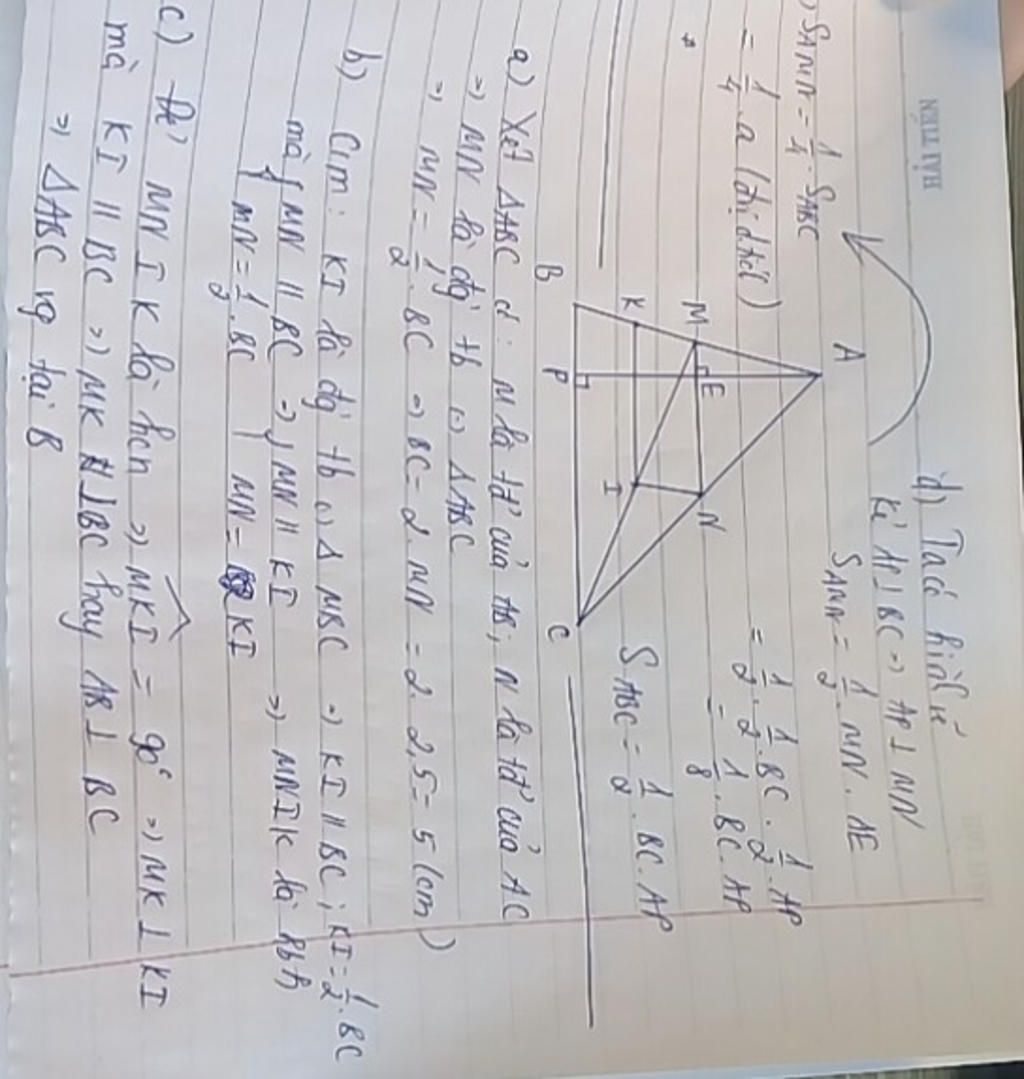 HẢI TIẾN
d) Ta có hình vẽ
Kẻ AP ⊥ BC => AP ⊥ MN
S_AMN = 1/2 . MN . AE
= 1/2 . 1/2 . BC . 1/2 . AP
= 1/8 . BC . AP
S_ABC = 1/2 . BC . AP
S_AMN = 1/4 . S_ABC
= 1/4 . a (đvị dtích)
A
M
E
N
K
I
B
P
C
a) Xét ΔABC có: M là tđ' của AB; N là tđ' của AC
=> MN là đg' tb c) ΔABC
=> MN = 1/2 . BC => BC = 2. MN = 2. 2,5 = 5 (cm)
b) C/m: KI là đg' tb c) Δ MBC => KI // BC ; KI = 1/2 . BC
mà { MN // BC => { MN // KI => MNIK là hbh
{ MN = 1/2 . BC { MN = KI
c) Để MNIK là hcn => MKI = 90° => MK ⊥ KI
mà KI // BC => MK ⊥ BC hay AB ⊥ BC
=> ΔABC vg tại B